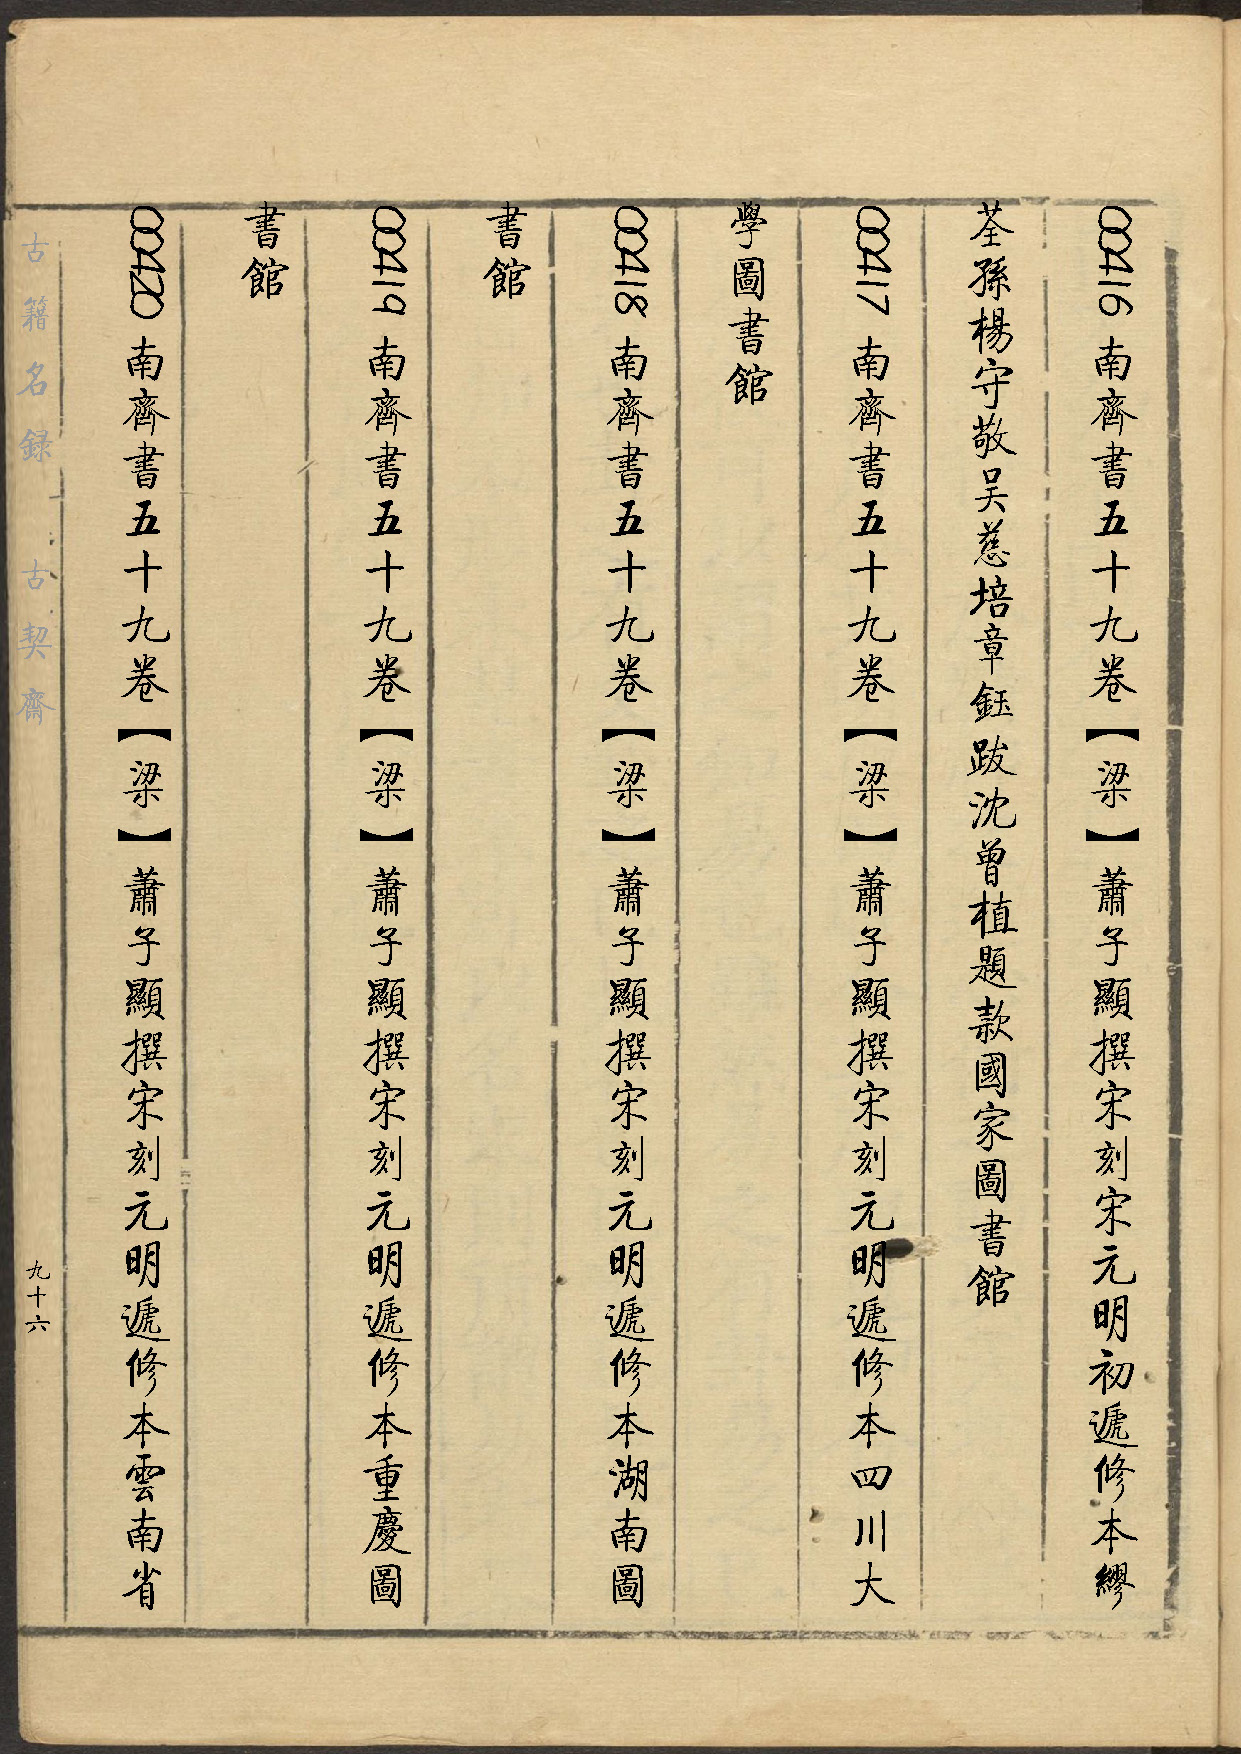 00416南齊書五十九卷【梁】蕭子顯撰宋刻宋元明初遞修本繆
荃孫楊守敬吴慈培章鈺跋沈曾植題款國家圖書館
00417南齊書五十九卷【梁】蕭子顯撰宋刻元明遞修本四川大
學圖書館
00418南齊書五十九卷【梁】蕭子顯撰宋刻元明遞修本湖南圖
書館
00419南齊書五十九卷【梁】蕭子顯撰宋刻元明遞修本重慶圖
書館
00420南齊書五十九卷【梁】蕭子顯撰宋刻元明遞修本雲南省
古籍名録 古契齋
九十六